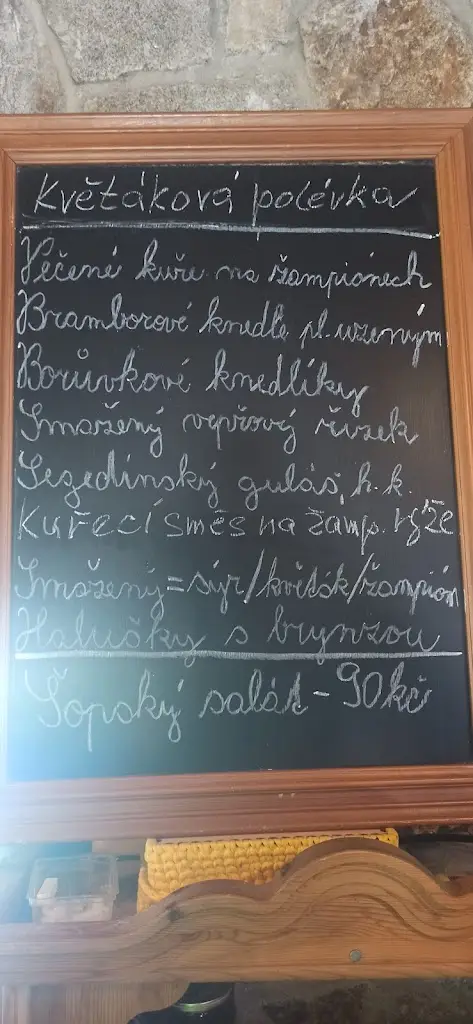 Květáková polévka
Pečené kuře na žampiónech
Bramborové knedle pl. uzeným
Borůvkové knedlíky
Smažený vepřový řízek
Segedínský guláš, h.k.
Kuřecí směs na žamp. rýže
Smažený=sýr/květák/žampión
Halušky s brynzou
Šopský salát - 90kč